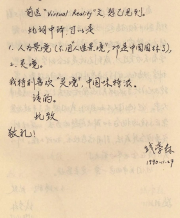 前送“Virtual Reality”文,想已见到。
此词中译,可以是:
1. 人为景境(不用人造景境,那是中国园林了),
2. 灵境。
我特别喜欢“灵境”,中国味特浓。
请酌。
此致
敬礼!
钱学森
1990.11.27